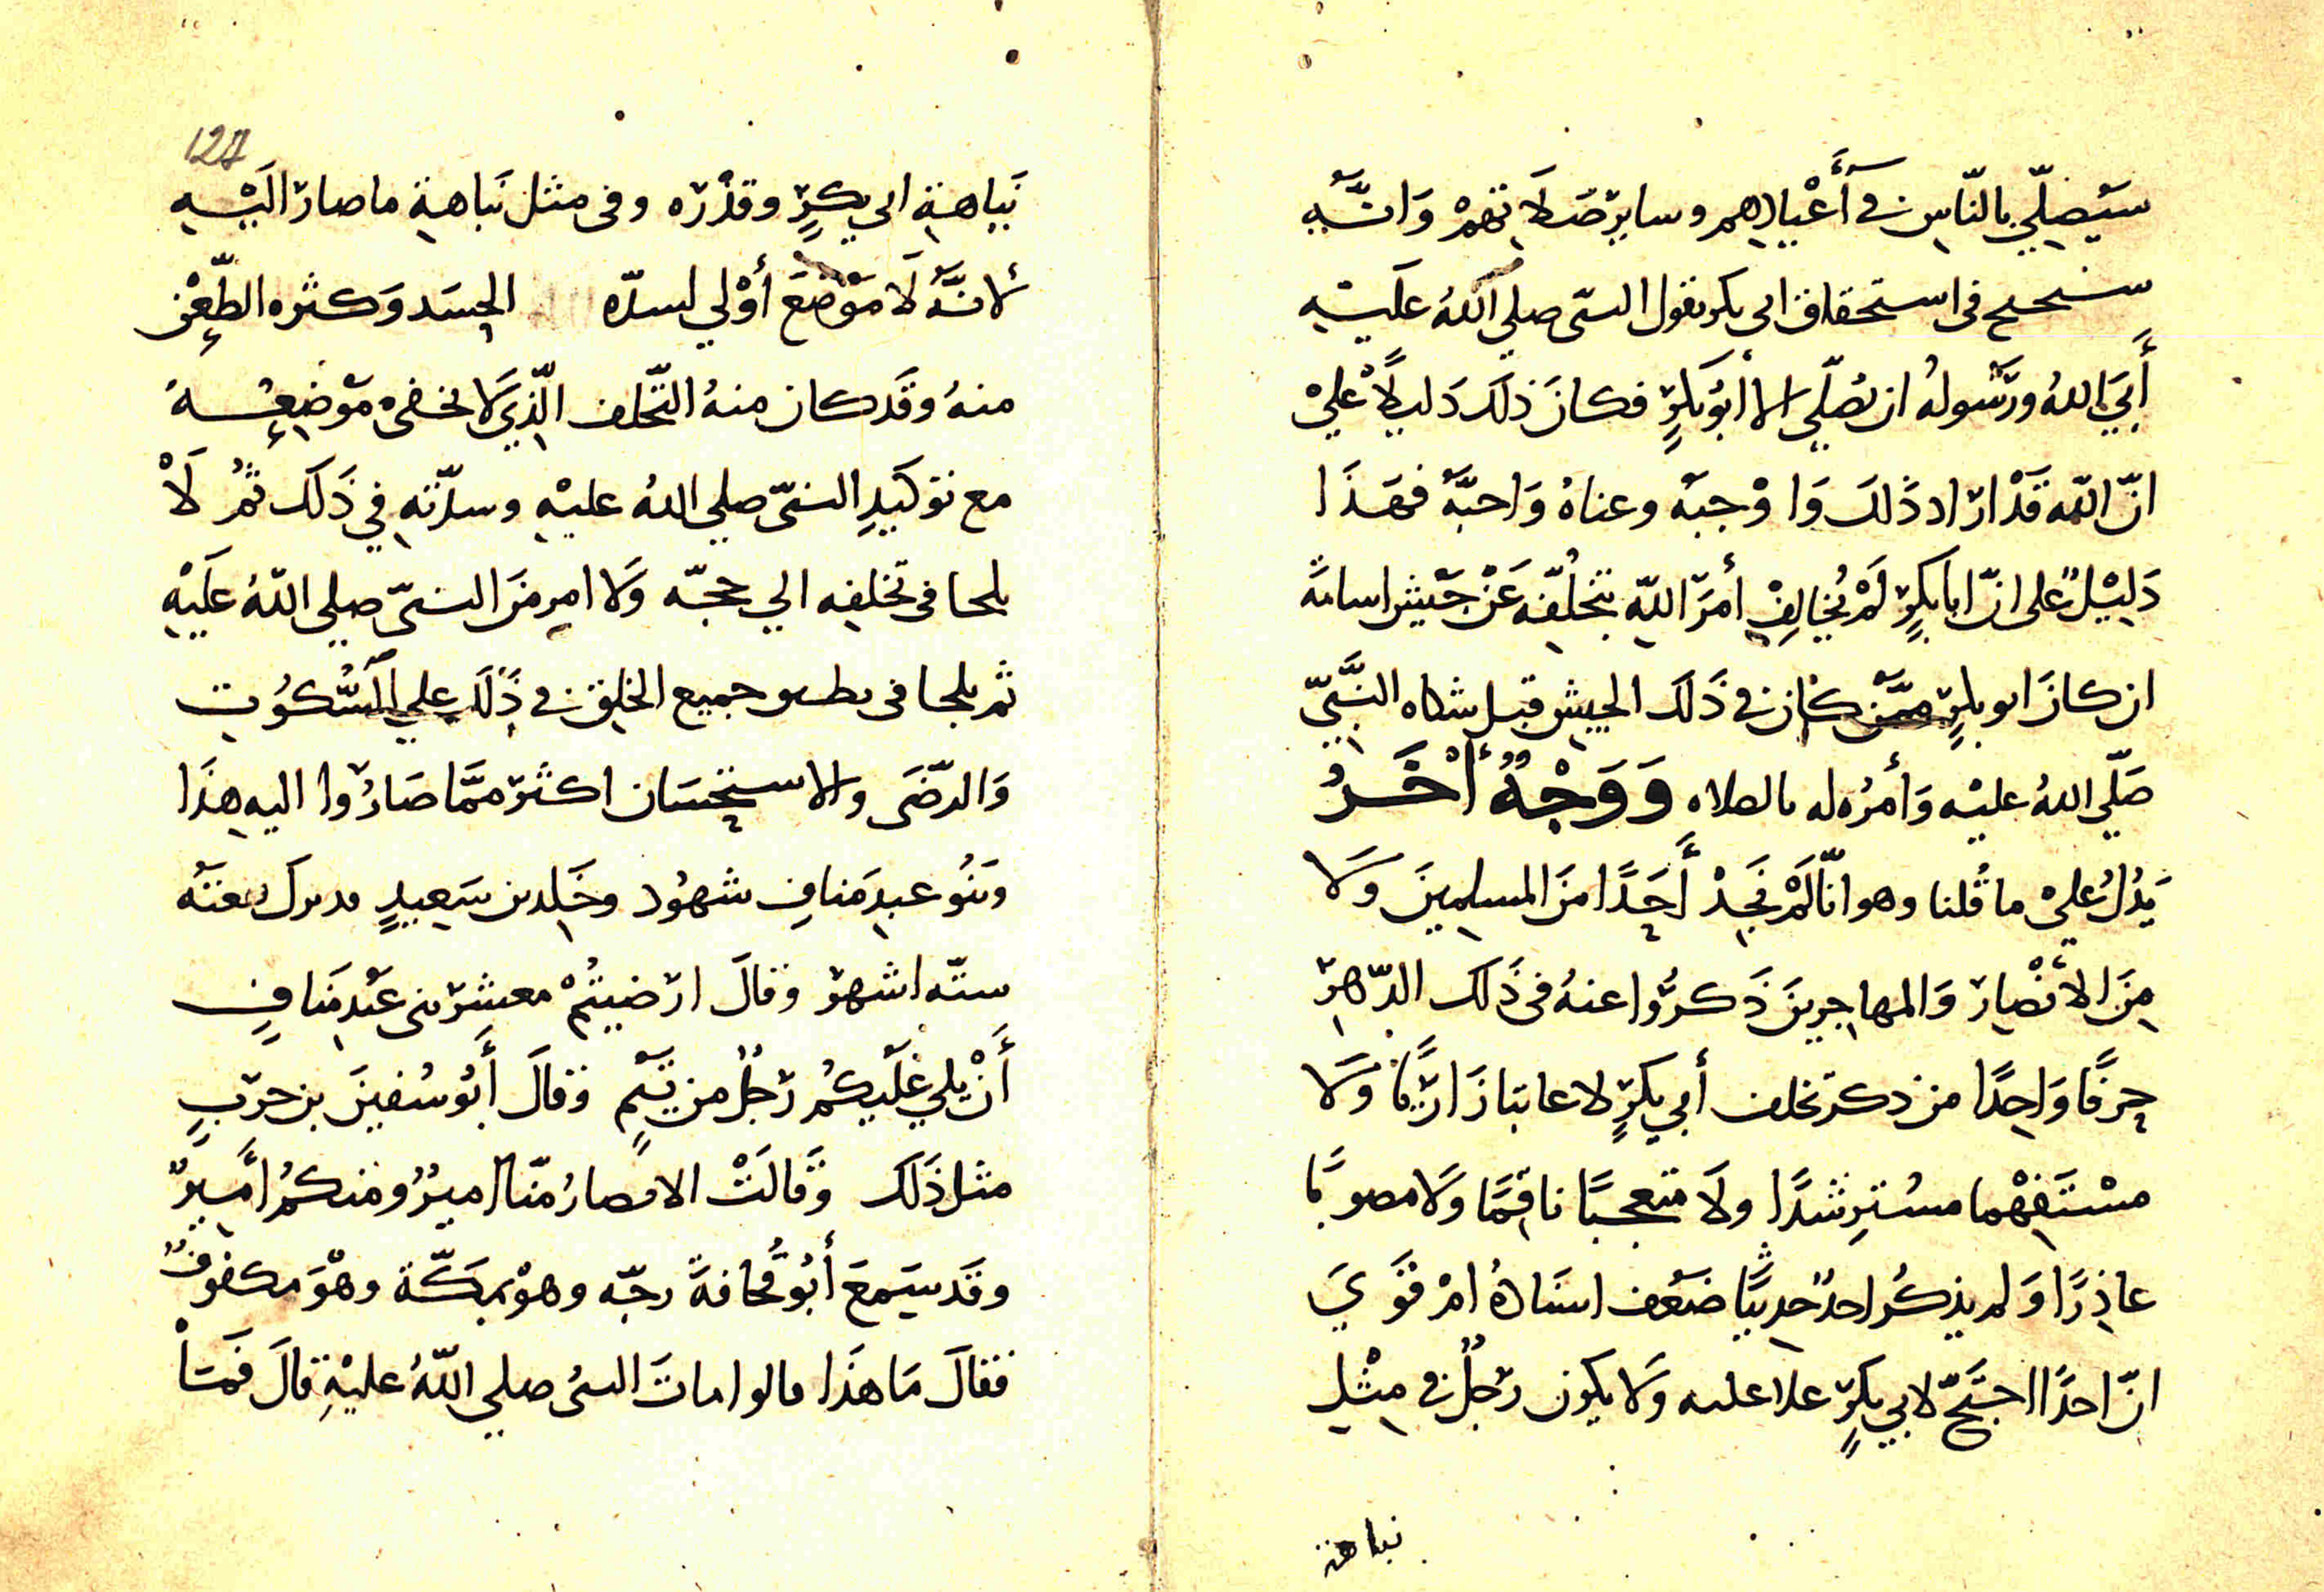 سَيُصلّي بالنّاسِ في أَعْيادِهِم وسايرِ صَلَاتِهِمْ وَانَّهُ
سنحتح في استحقاق ابي بكر بقول النبي صلي اللهُ عَلَيْهِ
أَبَي اللهُ ورَسُولُه ان يُصَلّي الا أبُو بَكرٍ فكانَ ذلكَ دَليلًا عَليْ
انّ اللّه قَدْ ارَاد ذَالكَ وَاوْجبَه وعناهُ وَاحبَّهُ فهَذَا
دَلِيْلٌ على انّ ابا بكرٍ لَمْ يُخالِفْ أمرَ اللّهِ بتخلُّفِه عَنْ جَيْش اسامَة
ان كانَ ابو بكرٍ ممّن كان في ذَلكَ الجيش قبل شكاه النَّبيّ
صَلّي اللهُ عليْه وَأمرُه له بالصلاه وَوَجْهٌ أخَرُ
يَدُلُ عليْ ما قُلنا وهو انّا لَمْ نَجِدْ أَحَدًا منَ المسلمينَ وَلَا
مِنَ الأنْصارِ وَالمهاجرينَ ذَكرُوا عنهُ في ذَلكَ الدّهرِ
حرفًا وَاحِدًا من ذكر تخلف أبي بكرٍ لا عاتبا زَاريًا وَلَا
مسْتَفهْما مسْتَرشدًا ولَا متعجبًا ناقمًا وَلا مصوبًا
عاذِرًا وَلم يذكُر احدٌ حديثًا ضَعُف اسنَادهُ امْ قوَيَ
انّ احدًا احتَجّ لابي بكرٍ علا عليه وَلا يكون رَجُلٌ في مِثْلِ
نباهة
نَباهةِ ابي بكرٍ وقدْرَه وفى مثل نَباهةِ ما صارَ الَيْهِ
لانَّهُ لَا مَوْضعَ أوْلي لسدّه الحسَد وَكثره الطّعْنِ
منهُ وقَد كان منهُ التّخلف الّذي لَا يخفى مَوْضِعُهُ
مع توكيدِ النبيّ صلي اللهُ عليْهِ وسدّته في ذَلكَ ثمُ لَاْ
يلجا فى تخلفِه الي حجّه وَلا امرٍ منَ النبيّ صلي اللّهُ عَلَيْهِ
ثم يلجا فى جميع الخلق في ذَلكَ علي السُّكُوت
وَالرّضَى والاستحسَان اكثرَ ممَّا صَارُوا اليه هذَا
وَبنُو عبدِ مَنافِ شهُود وخَالِد بن سَعِيدٍ مد ترك بيعتَه
ستّه اشهر وقالَ ارَضيتُمْ معشر بني عَبْدِ مَنافِ
أَنْ يلي عَلَيكُمْ رَجُلٌ من تيْمٍ فقالَ أَبُو سُفينَ بن حربِ
مثل ذَلكَ وَقَالَتْ الانصارُ منّا اميرٌ ومنكُمْ أَميرٌ
وقَد سَمعَ أَبُو قُحافةَ رجّه وهوْ بمكّة وهْوَ مكفوفٌ
فقالَ مَا هذَا قالوا ماتَ النبيُ صلي اللّهُ عليْهِ قالَ فَمَا